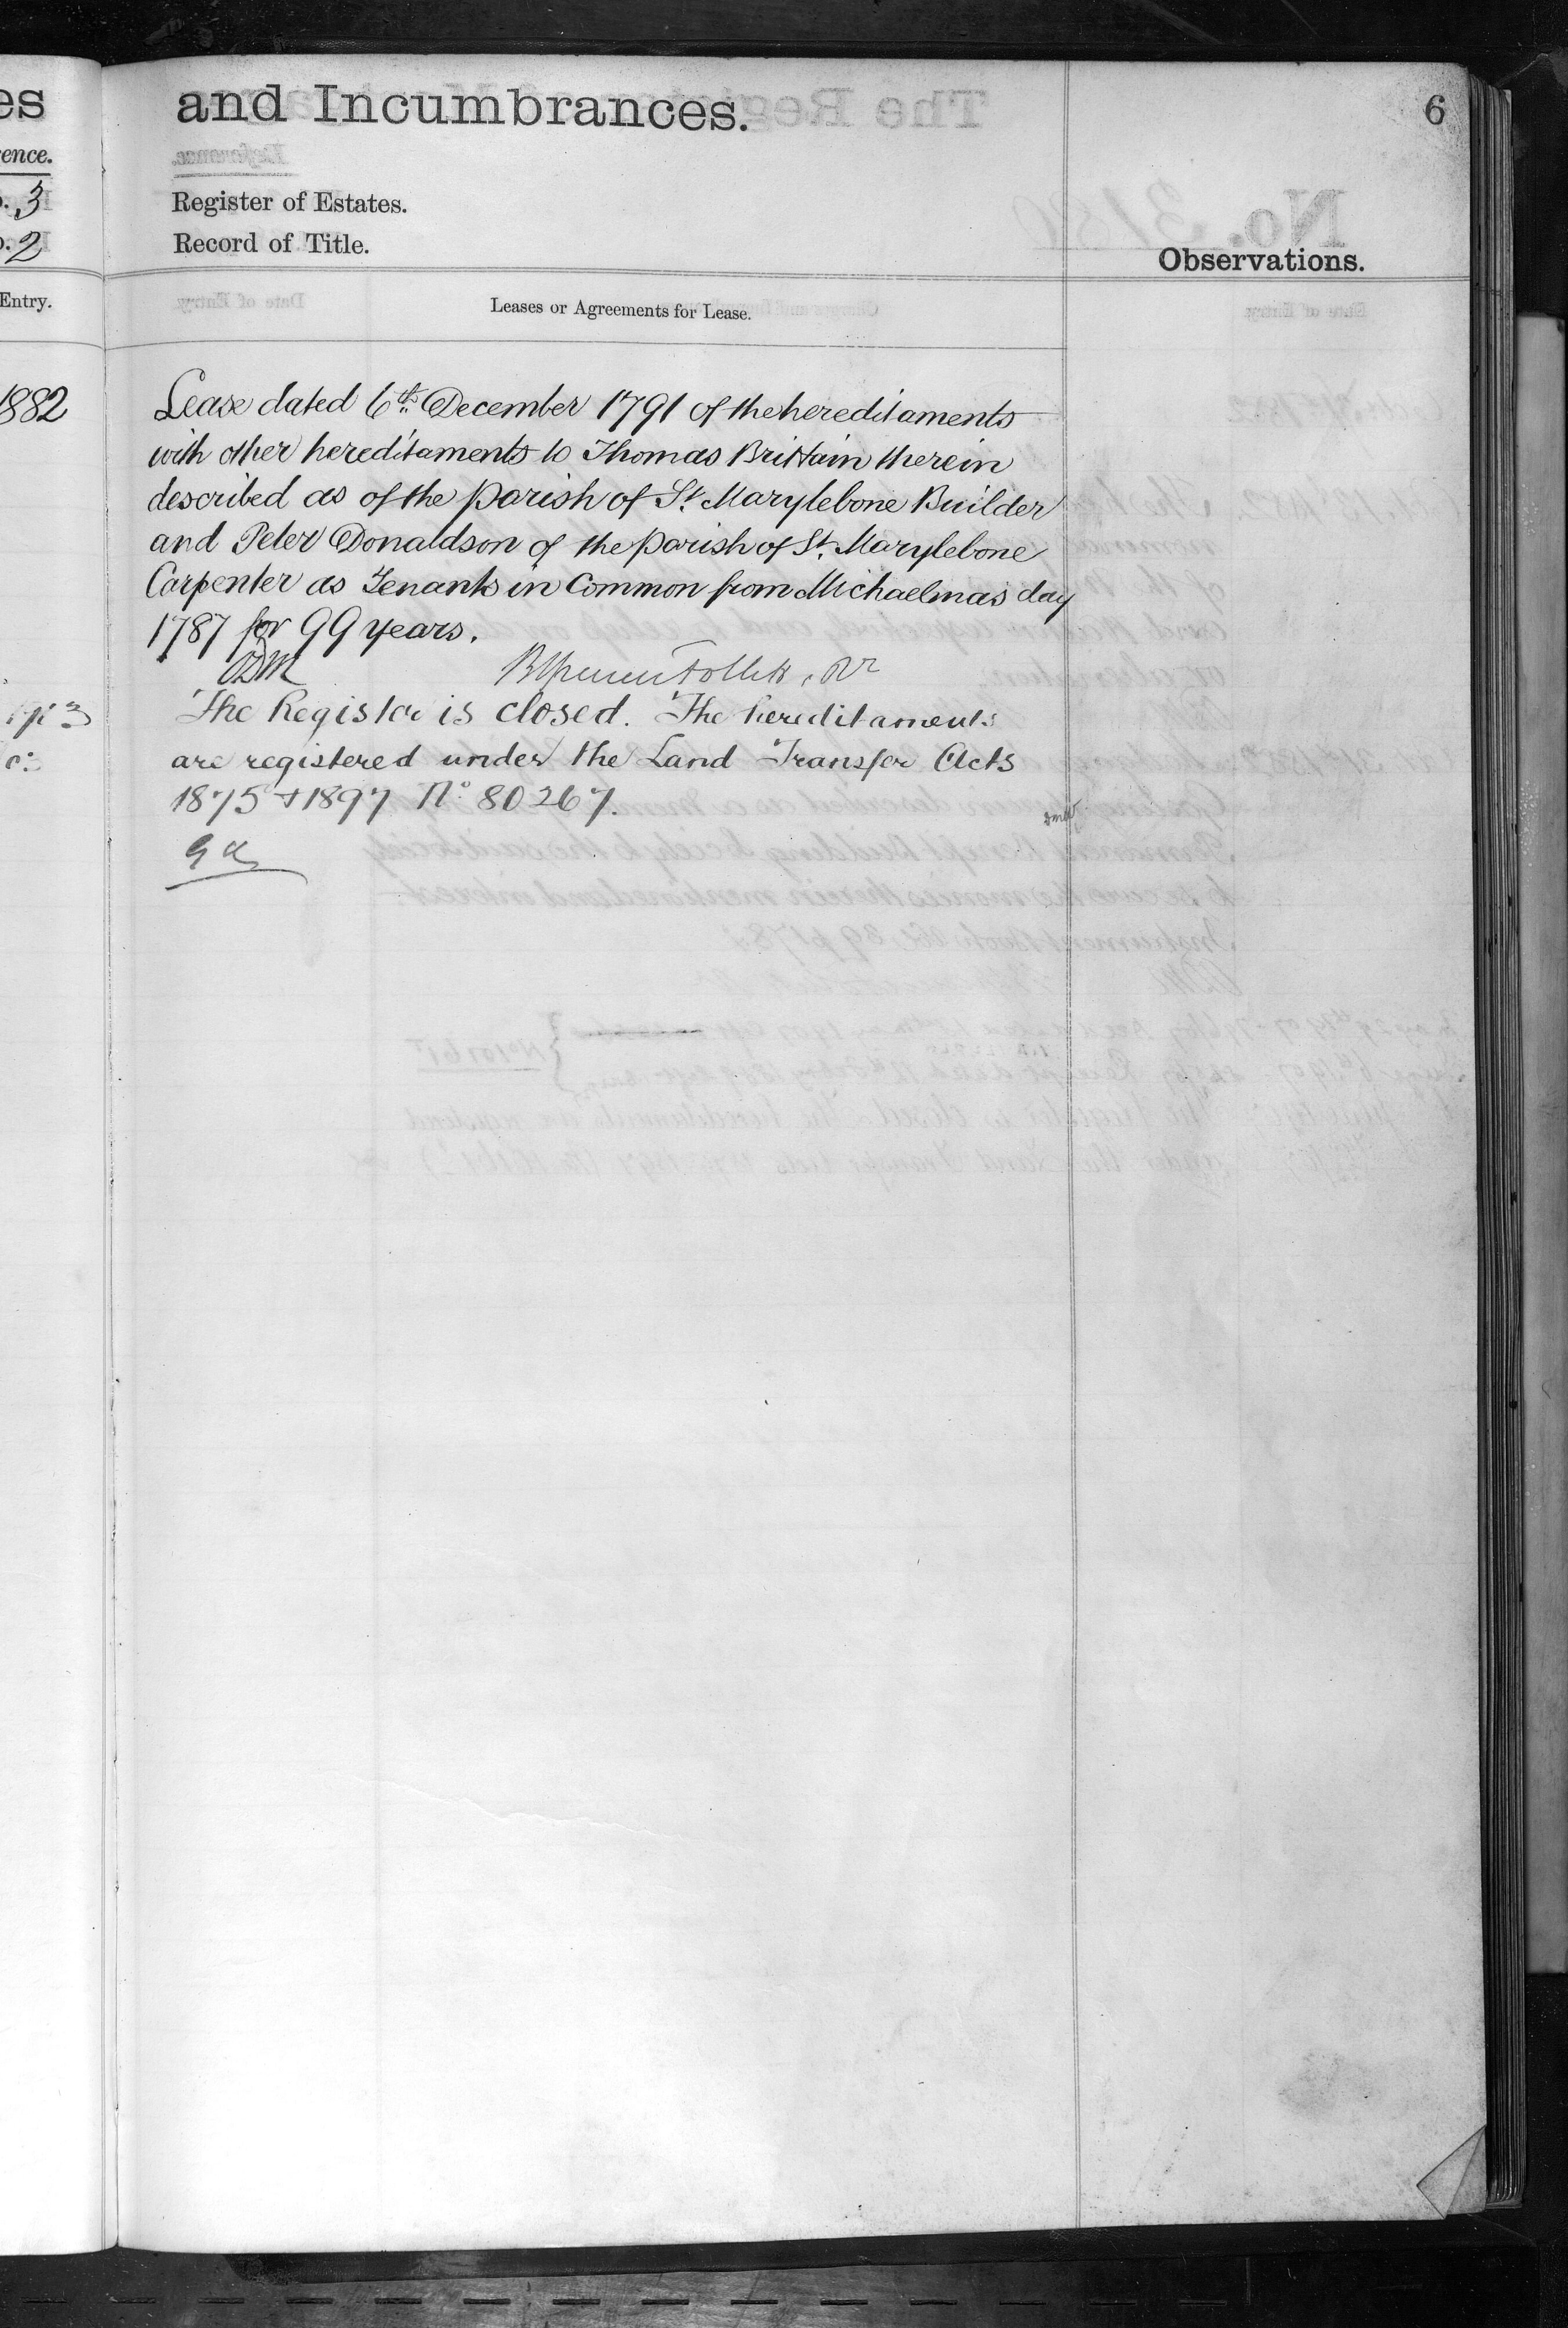 es
and Incumbrances.
6
ence.
Register of Estates.
3
Record of Title.
2
Observations.
Entry.
Leases or Agreements for Lease.
1882
Lease dated 6th December 1791 of the hereditaments
with other hereditaments to Thomas Brittain therein
described as of the parish of St. Marylebone Builder
and Peter Donaldson of the parish of St. Marylebone
Carpenter as Tenants in Common from Michaelmas day
1787 for 99 years.
The Register is closed. The hereditaments
are registered under the Land Transfer Acts
1875 & 1897 No. 80267.